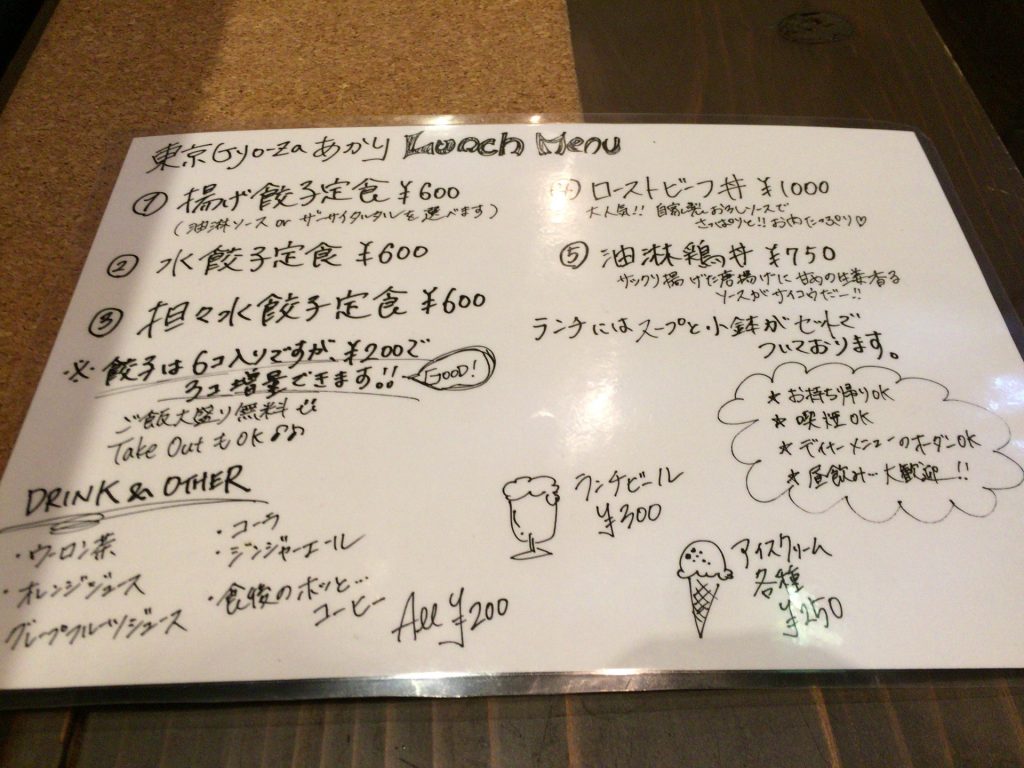 東京Gyo-Za あかり Lunch Menu
① 揚げ餃子定食 ¥600
(油淋ソース or ザーサイタルタルを選べます)
② 水餃子定食 ¥600
③ 担々水餃子定食 ¥600
※ 餃子は6コ入りですが、¥200で
3コ増量できます!! GOOD!
ご飯大盛り無料
Take Out もOK♪♪
ローストビーフ丼 ¥1000
大人気!! 自家製おろしソースで
さっぱりと!! お肉たっぷり♡
⑤ 油淋鶏丼 ¥750
サックリ揚げた唐揚げに
ソースがサイコウだー!!
ランチにはスープと小鉢がセットで
ついております。
★ お持ち帰りOK
★ 喫煙OK
★ ディナーメニューのオーダーOK
★ 昼飲み 大歓迎!!
DRINK & OTHER
・ウーロン茶
・オレンジジュース
グレープフルーツジュース
・コーラ
・ジンジャーエール
・食後のホッと…
コーヒー
All ¥200
ランチビール
¥300
アイスクリーム
各種
¥250